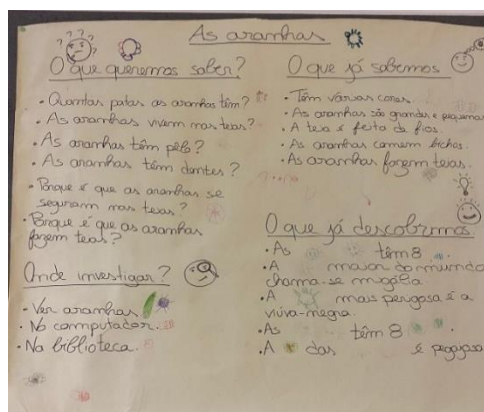 As aranhas
O que queremos saber?
• Quantas patas as aranhas têm?
• As aranhas vivem nas teias?
• As aranhas têm pêlo?
• As aranhas têm dentes?
• Porque é que as aranhas se
seguram nas teias?
• Porque é que as aranhas
fazem teias?
Onde investigar?
• Ver aranhas.
• No computador.
• Na biblioteca.
O que já sabemos
• Têm várias cores.
• As aranhas são grandes e pequenas
• A teia é feita de fios.
• As aranhas comem bichos.
• As aranhas fazem teias.
O que já descobrimos
• As têm 8 .
• A maior do mundo
chama-se migália.
• A mais perigosa é a
viúva-negra.
• As têm 8 .
• A das é pegajosa